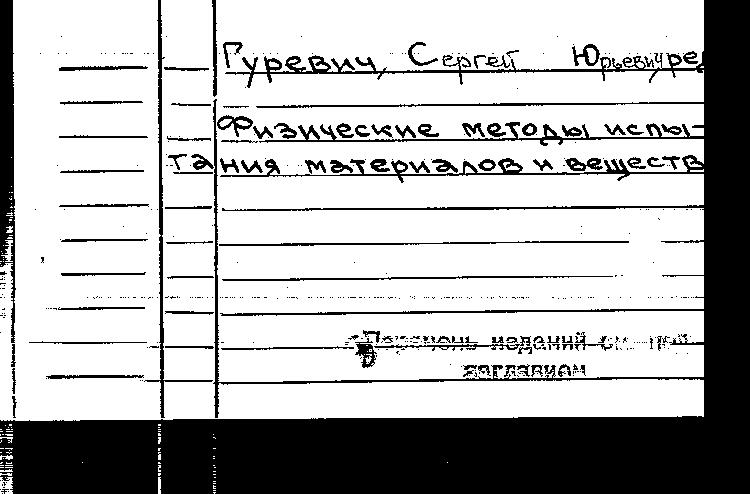 Гуревич, Сергей Юрьевич, ред
Физические методы испы-
тания материалов и веществ
Перечень изданий см. под
заглавием